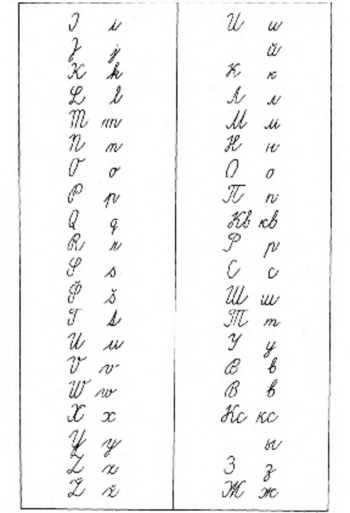 I i И и
J j й
K k К к
L l Л л
M m М м
N n Н н
O o О о
P p П п
Q q Кв кв
R r Р р
S s С с
Š š Ш ш
T t Т т
U u У у
V v В в
W w В в
X x Кс кс
Y y ы
Z z З з
Ž ž Ж ж